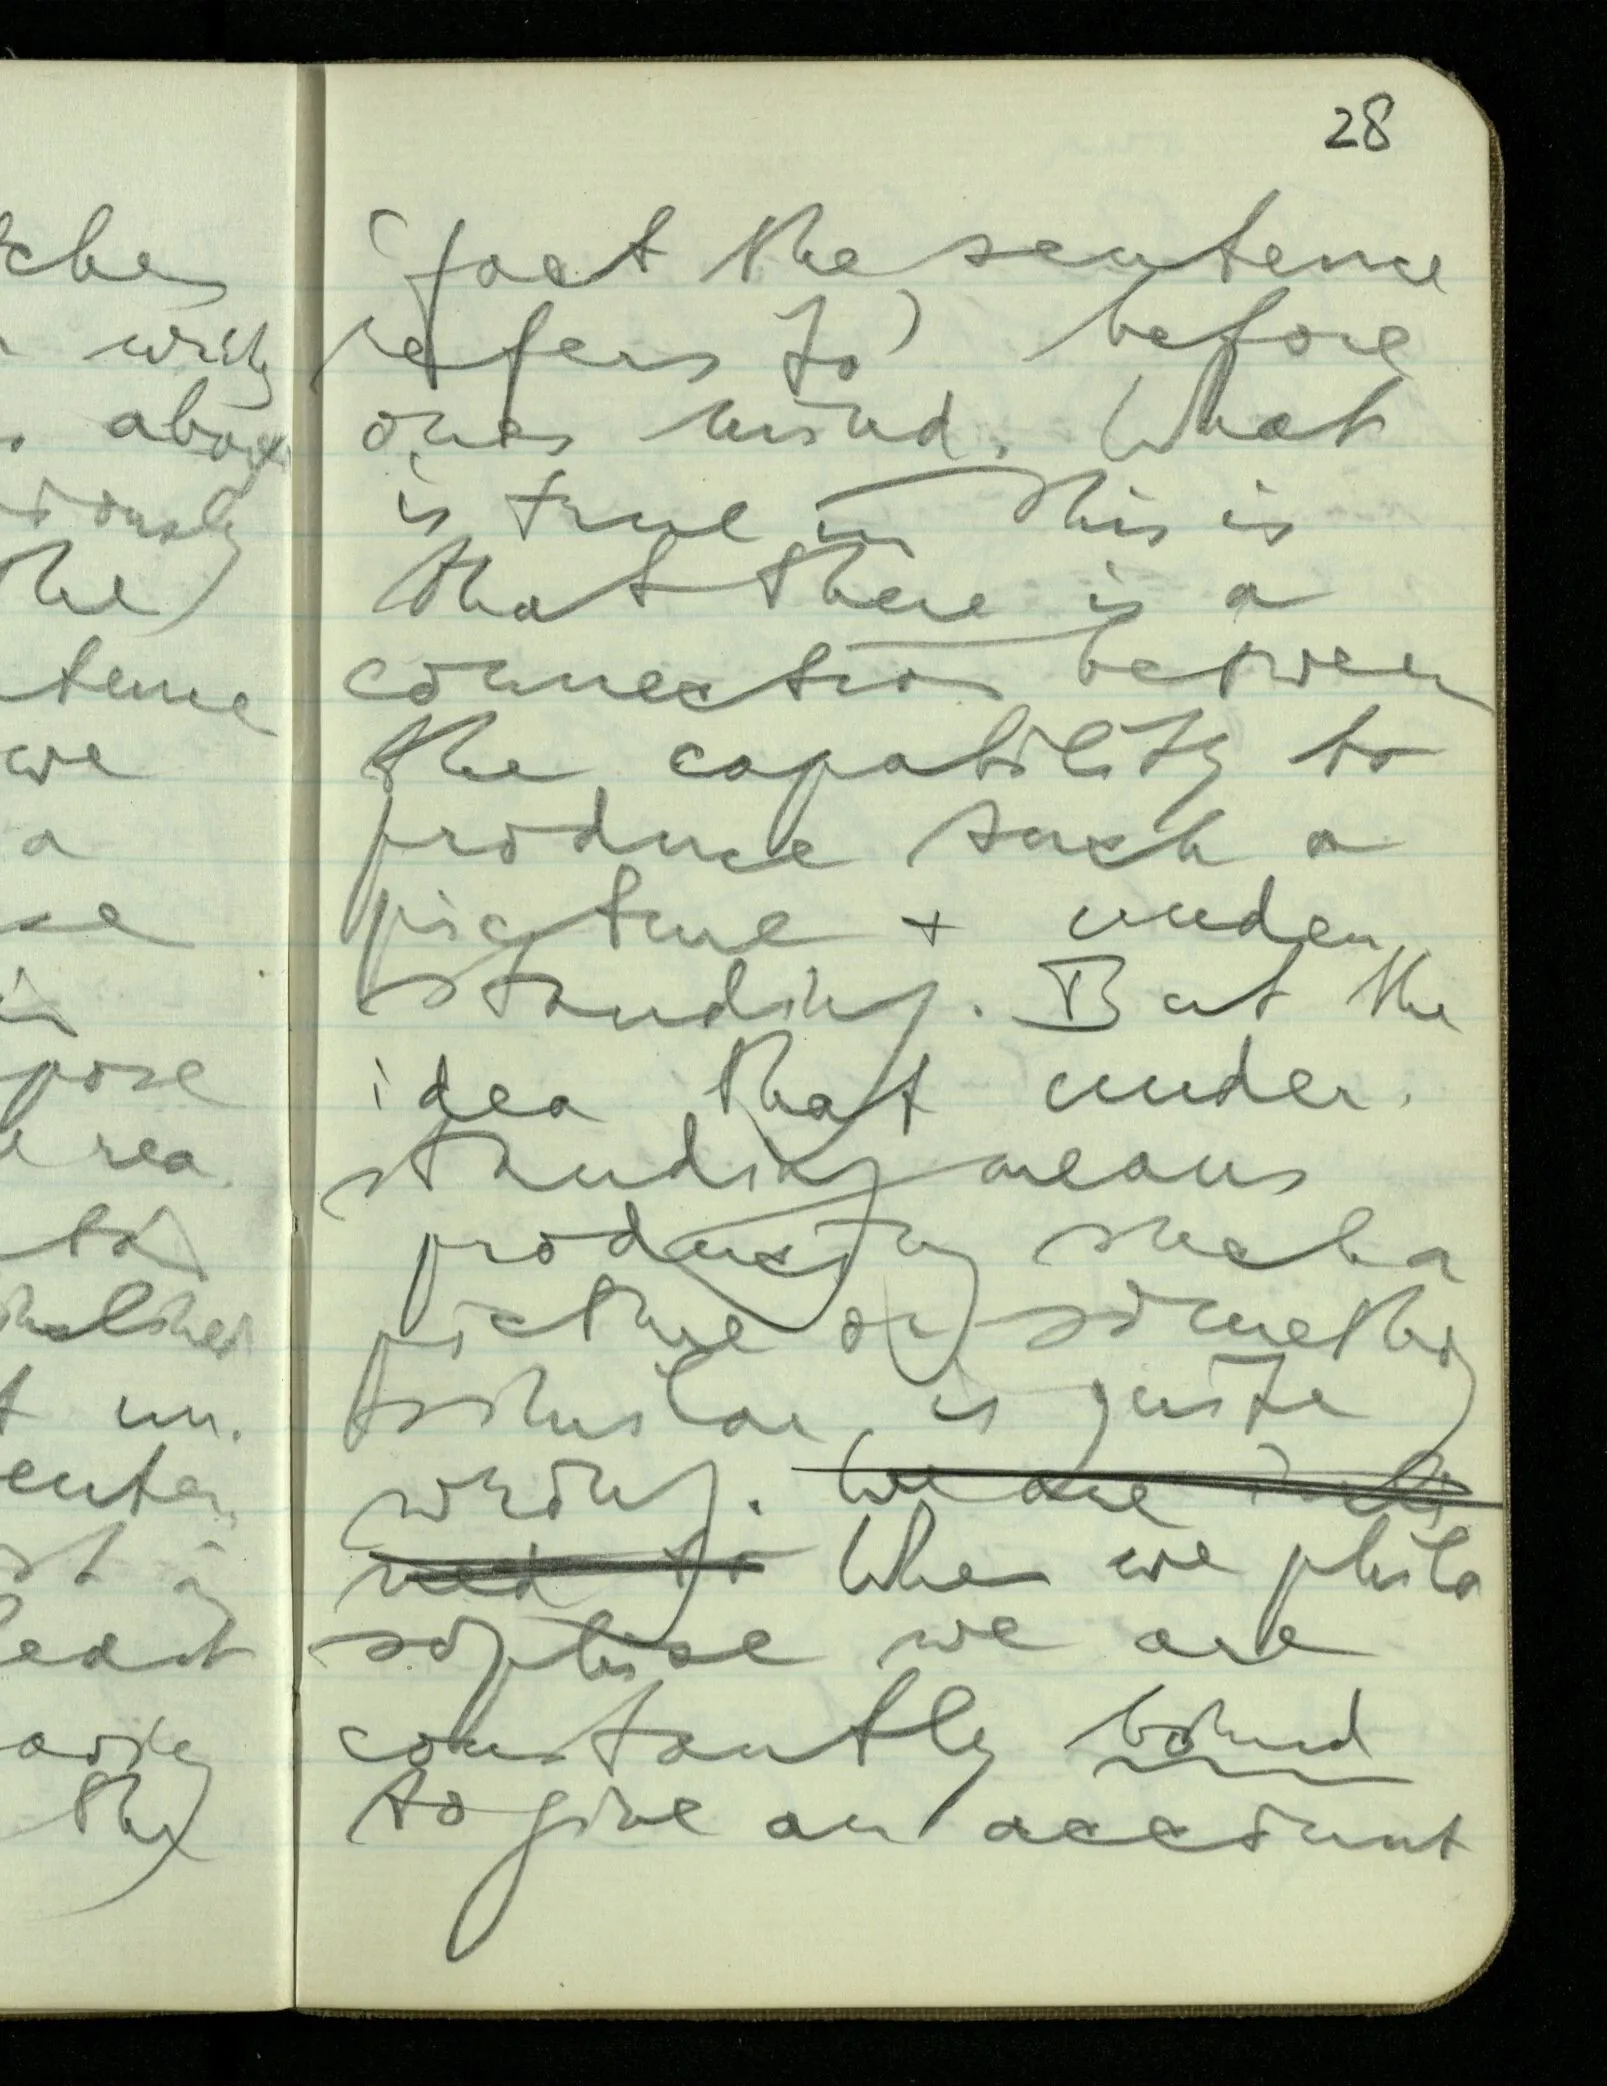 28
tches
writg
abov
iously
the
ntence
we
a
se
in
pose
rea
to
inclined
t un.
enten
st in
least
the
(fact the sentence
refers to) before
ones mind. What
is true in this is
that there is a
connection between
the capability to
produce such a
picture + under
standing. But the
idea that under.
standing means
producing such a
picture or somethg
similar, is quite
wrong. We are
used to When we philo
sophise we are
constantly bound
to give an account